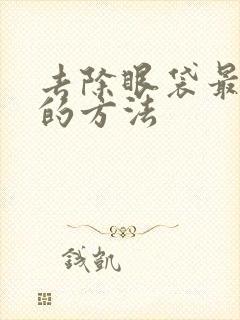 去除眼袋最
的方法
钱凯